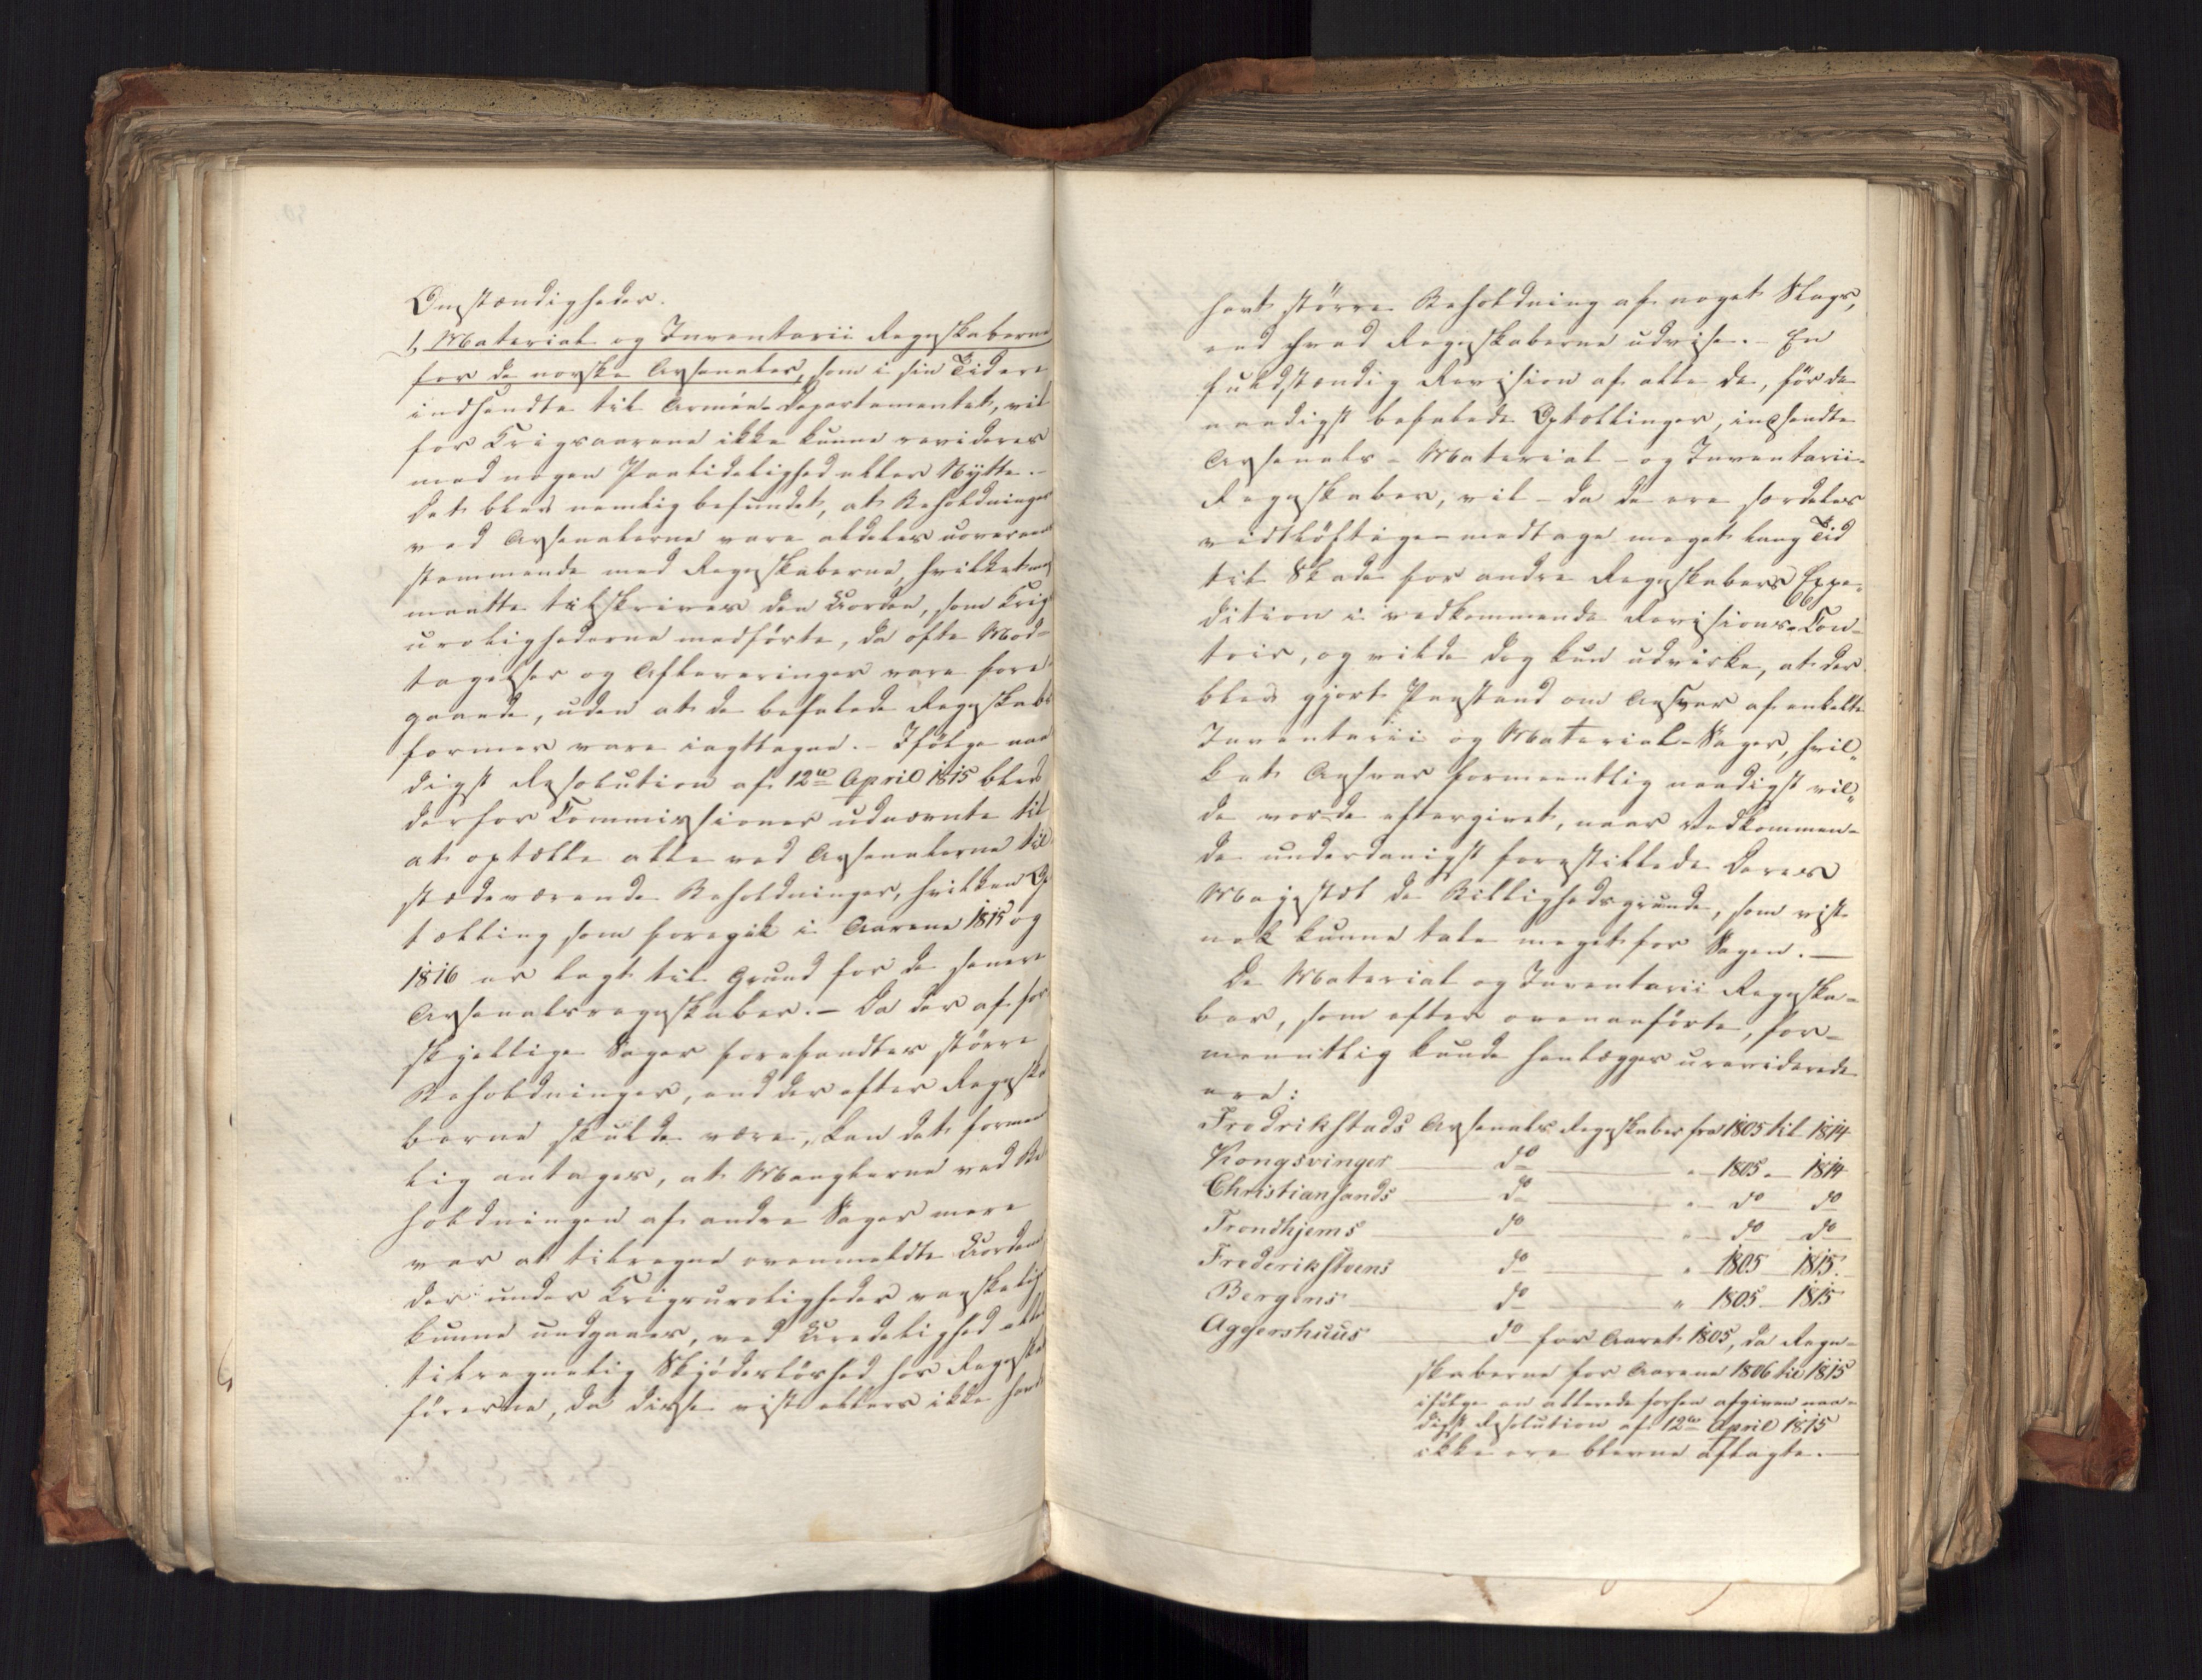 Omstændigheder.
1, Material og Inventarii Regnskaberne
for de norske Arsenaler, som i sin Tid ere
indsendte til Armée-Departementet, vil
for Krigsaarene ikke kunne revideres
med nogen Paalidelighed eller Nytte.-
Det blev nemlig befundet, at Beholdninger
ved Arsenalerne vare aldeles uovereens
stemmende med Regnskaberne, hvilket
maatte tilskrives den Uorden, som Krigs
urolighederne medførte, da ofte Mod-
tagelser og Afleveringer vare fore-
gaaede, uden at de befalede Regnskabs
former vare iagttagne.- Ifølge naa
digst Resolution af 12te April 1815 blev
derfor Commissioner udnævnte til
at optælle alle ved Arsenalerne til
stædeværende Beholdninger, hvilken Op
tælling som foregik i Aarene 1815 og
1816 er lagt til Grund for de senere
Arsenalsregnskaber.- Da der af for
skjellige Sager forefandtes större
Beholdninger, end der efter Regnska
berne skulde være, kan det formee
lig antages, at Manglerne ved Be
holdningen af andre Sager mere
var at tilregne ovenmeldte Uorden
der under Krigsuroligheder vanskelig
kunne undgaaes, end Uredelighed eller
tilregnelig Skjödesløshed hos Regnska
förerne, da disse vist ellers ikke havde
havt större Beholdning af noget Slags,
end hvad Regnskaberne udvise.- En
fuldstændig Revision af alle de, för de
naadigst befalede Optællinger, indsendte
Arsenals-Material- og Inventarii-
Regnskaber, vil - da de ere særdeles
vidtløftige - medtage meget lang Tid
til Skade for andre Regnskabers Expe-
dition i vedkommende Revisions-Con-
toir, og vilde dog kun udvirke, at der
blev gjort Paastand om Ansvar af enkelte
Inventarii og Material-Sager, hvil-
ket Ansvar formeentlig naadigst vil-
de vorde eftergivet, naar Vedkommen-
de underdanigst forestillede Deres
Majestæt de Billighedsgrunde, som vist
nok kunne tale meget for Sagen.-
De Material og Inventarii Regnska-
ber, som efter ovenanförte, for-
meentlig kunde henlægges ureviderede
ere:
Fredrikstads Arsenals Regnskaber fra 1805 til 1814
Kongsvinger do " 1805 - 1814
Christiansands do " do do
Trondhjems do " do do
Frederiksteens do " 1805 1815.
Bergens do " 1805 - 1815
Aggershuus do for Aaret 1805, da Regn-
skaberne for Aarene 1806 til 1815
ifölge en allerede forhen afgiven naa-
digst Resolution af 12te April 1815
ikke ere blevne aflagte.-